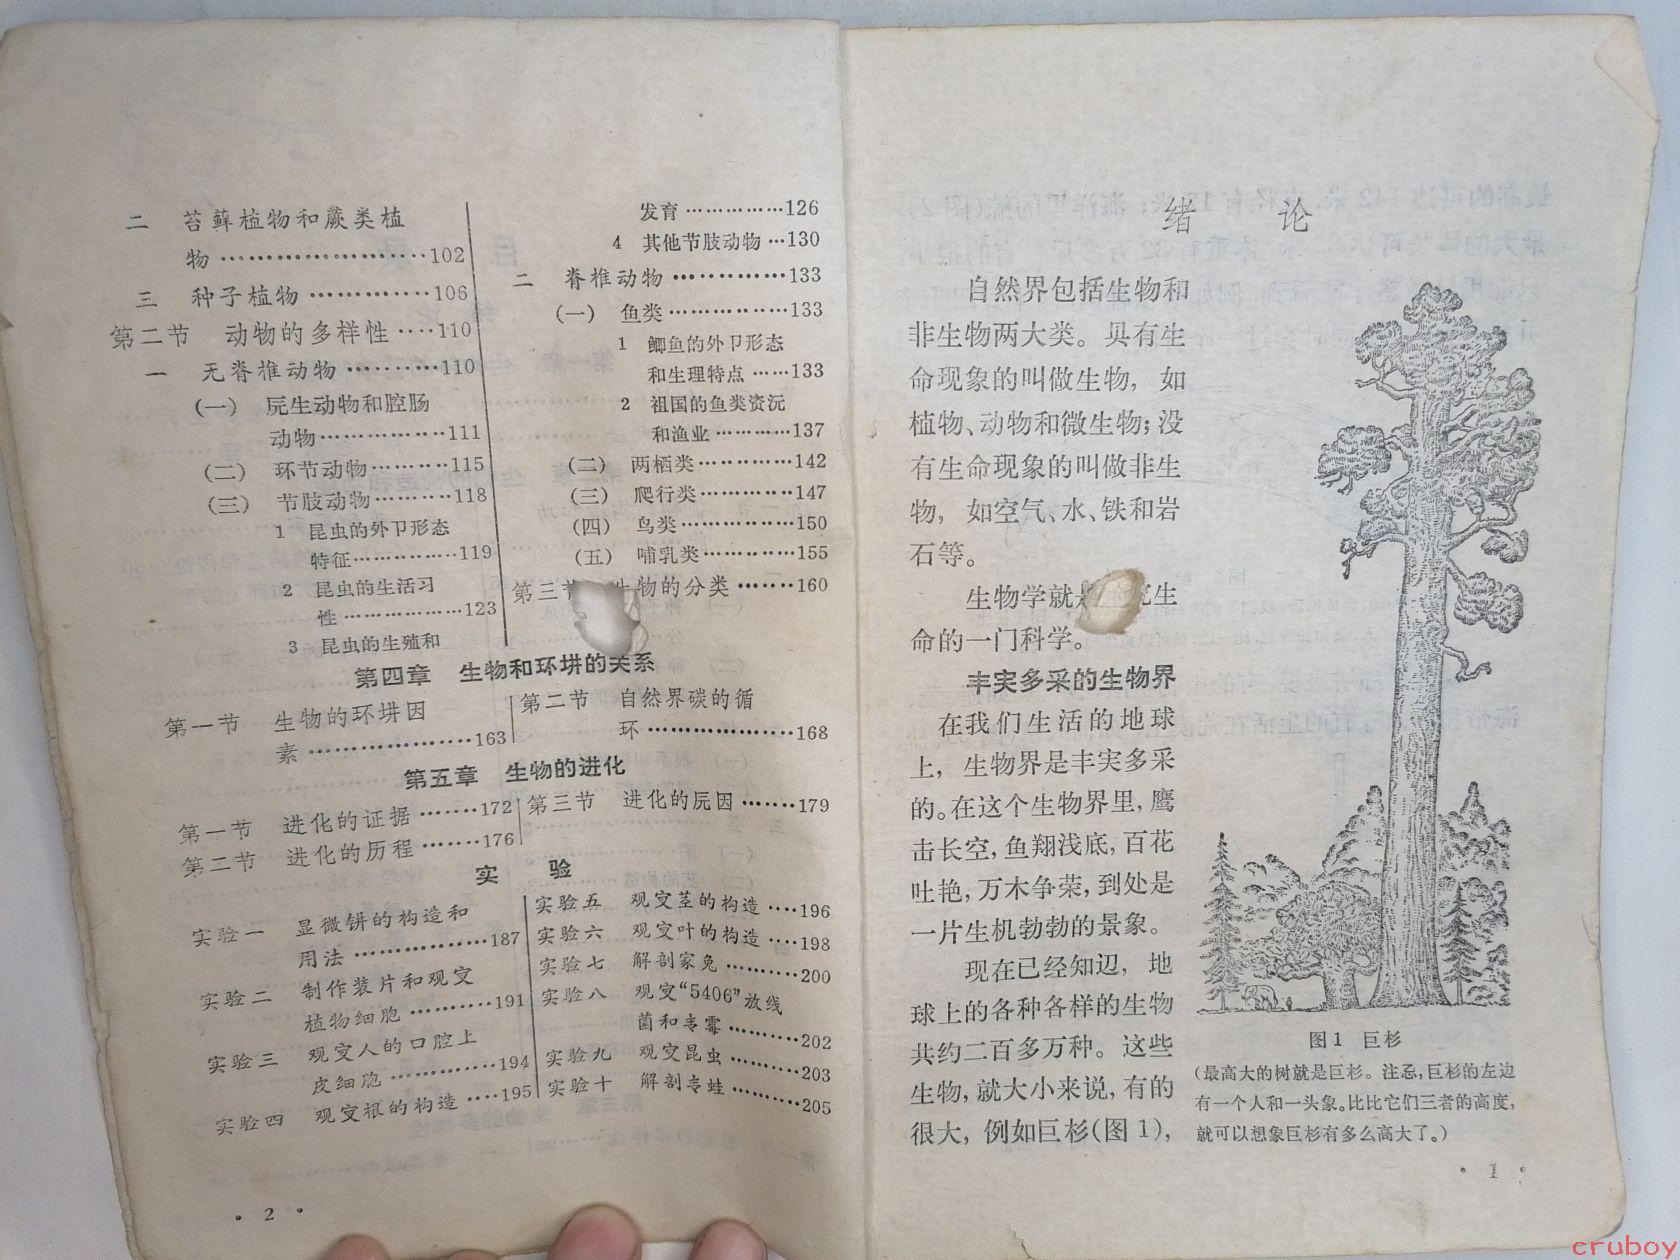 二 苔藓植物和蕨类植
物 ……………………102
三 种子植物 …………106
第二节 动物的多样性 ….110
一 无脊椎动物 ………110
(一) 原生动物和腔肠
动物……………111
(二) 环节动物………115
(三) 节肢动物………118
1 昆虫的外卩形态
特征……………119
2 昆虫的生活习
性 ……………123
3 昆虫的生殖和
发育 ……………126
4 其他节肢动物 …130
二 脊椎动物 …………133
(一) 鱼类 ……………133
1 鲫鱼的外卩形态
和生理特点 ……133
2 祖国的鱼类资沅
和渔业 …………137
(二) 两栖类…………142
(三) 爬行类…………147
(四) 鸟类……………150
(五) 哺乳类…………155
第三节 生物的分类 ……160
第四章 生物和环境的关系
第一节 生物的环境因
素 ………………163
第二节 自然界碳的循
环 ………………168
第五章 生物的进化
第一节 进化的证据 ……172
第二节 进化的历程 ……176
第三节 进化的原因 ……179
实 验
实验一 显微镜的构造和
用法 ……………187
实验二 制作装片和观察
植物细胞 ………191
实验三 观察人的口腔上
皮细胞 …………194
实验四 观察根的构造 …195
实验五 观察茎的构造 …196
实验六 观察叶的构造 …198
实验七 解剖家兔 ………200
实验八 观察“5406”放线
菌和青霉 ………202
实验九 观察昆虫 ………203
实验十 解剖青蛙 ………205
· 2 ·
绪 论
自然界包括生物和
非生物两大类。具有生
命现象的叫做生物, 如
植物、动物和微生物;没
有生命现象的叫做非生
物, 如空气、水、铁和岩
石等。
生物学就是 究生
命的一门科学。
丰富多采的生物界
在我们生活的地球
上, 生物界是丰富多采
的。在这个生物界里,鹰
击长空,鱼翔浅底,百花
吐艳,万木争荣,到处是
一片生机勃勃的景象。
现在已经知辺, 地
球上的各种各样的生物
共约二百多万种。这些
生物,就大小来说,有的
很大, 例如巨杉(图1),
图1 巨杉
(最高大的树就是巨杉。注意,巨杉的左边
有一个人和一头象。比比它们三者的高度,
就可以想象巨杉有多么高大了。)
· 1 ·
cruboy